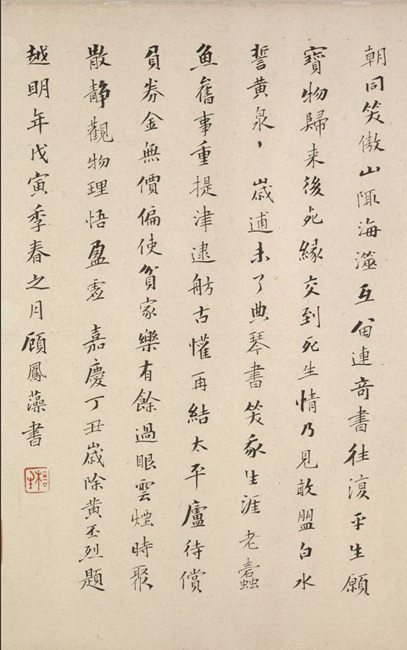 朝同笑傲山陬海澨互畱連奇書往復平生願
寶物歸来後死緣交到死生情乃見敢盟白水
誓黄泉歲逋未了典琴書笑我生涯老蠹
魚舊事重提津逮舫古懽再結太平廬待償
負券金無價偏使貧家樂有餘過眼雲煙時聚
散静觀物理悟盈虚 嘉慶丁丑歲除黄丕烈題
越明年戊寅季春之月顧鳳藻書